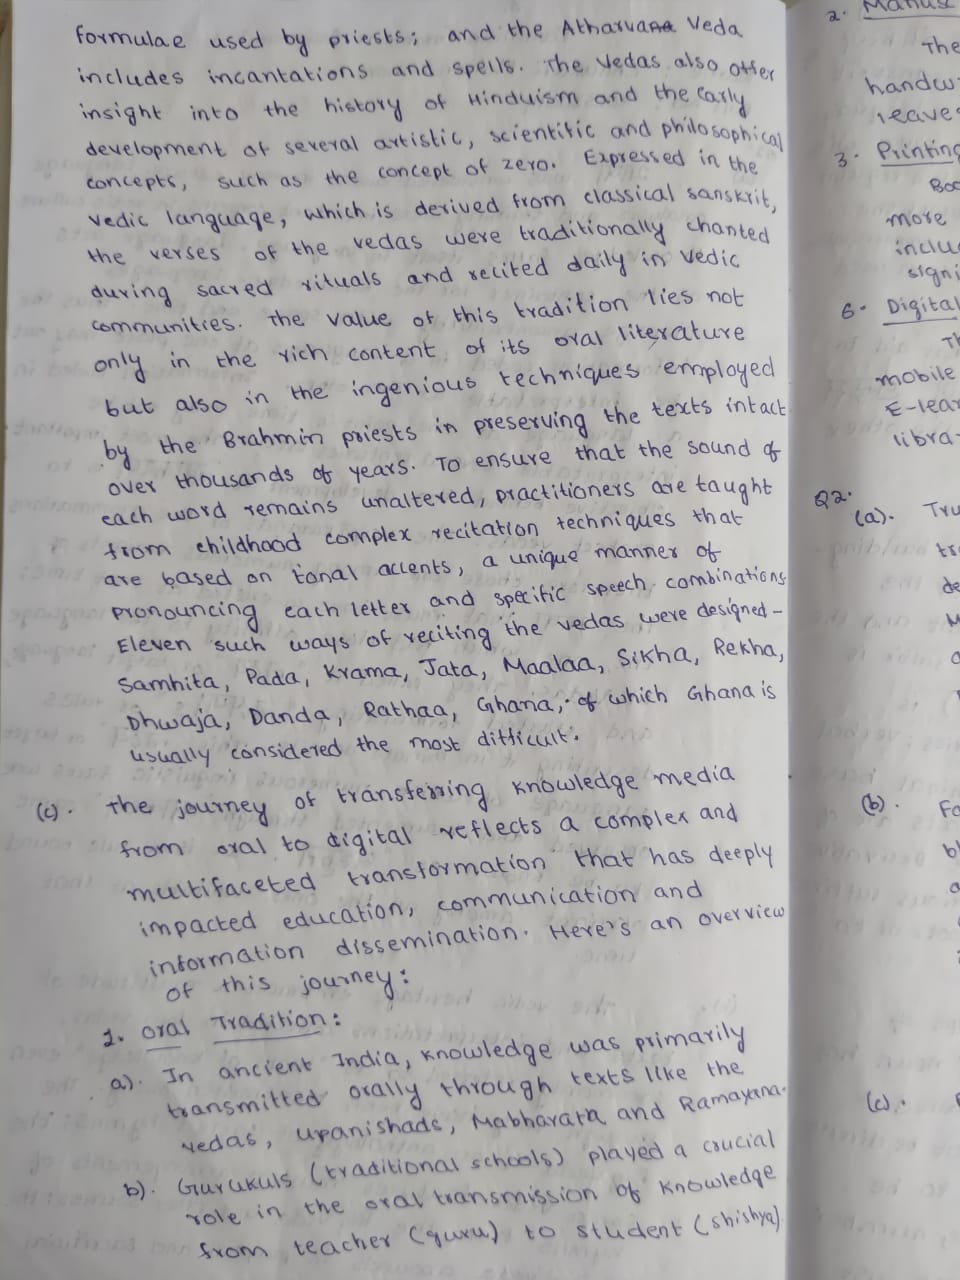 formulae used by priests; and the Atharvana Veda
includes incantations and spells. The Vedas also offer
insight into the history of Hinduism and the Early
development of several artistic, scientific and philosophical
concepts, such as the concept of zero. Expressed in the
vedic language, which is derived from classical sanskrit,
the verses of the vedas were traditionally chanted
during sacred rituals and recited daily in vedic
communities. The value of this tradition lies not
only in the rich content of its oral literature
but also in the ingenious techniques employed
by the Brahmin priests in preserving the texts intact
over thousands of years. To ensure that the sound of
each word remains unaltered, practitioners are taught
from childhood complex recitation techniques that
are based on tonal accents, a unique manner of
pronouncing each letter and specific speech combinations
Eleven such ways of reciting the vedas were designed -
Samhita, Pada, Krama, Jata, Maalaa, Sikha, Rekha,
Dhwaja, Danda, Rathaa, Ghana, of which Ghana is
usually considered the most difficult.
(c). the journey of transferring knowledge media
from oral to digital reflects a complex and
multifaceted transformation that has deeply
impacted education, communication and
information dissemination. Here's an overview
of this journey:
1. Oral Tradition:
a). In ancient India, knowledge was primarily
transmitted orally through texts like the
vedas, upanishads, Mabharata and Ramayana.
b). Gurukuls (traditional schools) played a crucial
role in the oral transmission of knowledge
from teacher (guru) to student (shishya)
2. Manus
The
handw
leaves
3. Printing
Boo
more
inclu
signi
6. Digital
Th
mobile
E-lear
libra
Q2.
(a). Tru
tr
de
M
a
(b). Fo
bl
a
(c).